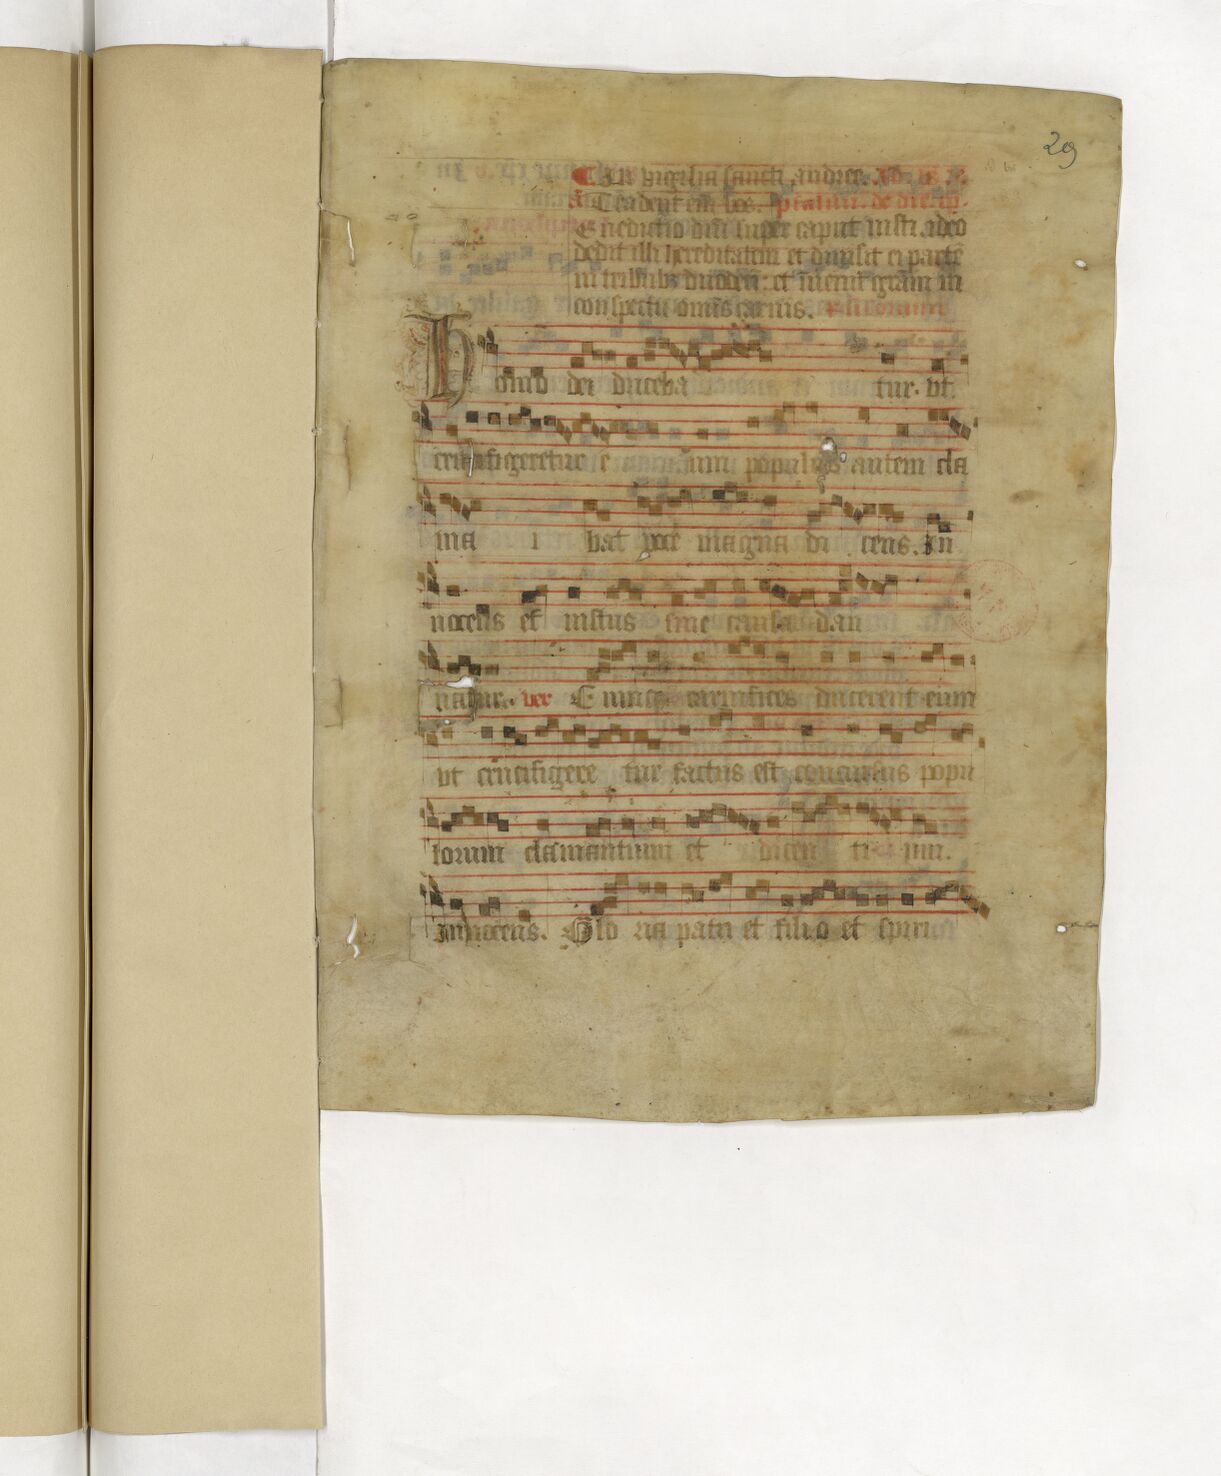 29
In vigilia sancti andree. ad
dent eis los. psalmi. de die. cap.
Benedictio dni super caput iusti. ideo
dedit illi hereditatem et diuisit ei partē
in tribubz duodecī: et inuenit grām in
conspectu omīs carnis.
Homo dei duceba tur. vt
crucifigeretur populus autem cla
ma bat voce magna di cens. In
nocens et iustus sine causa dam
natur. ver Cumqz carnifices ducerent eum
vt crucifigere tur factus est concursus popu
lorum clamantium et dicen ti um.
Innocens. Glo ria patri et filio et spiritu